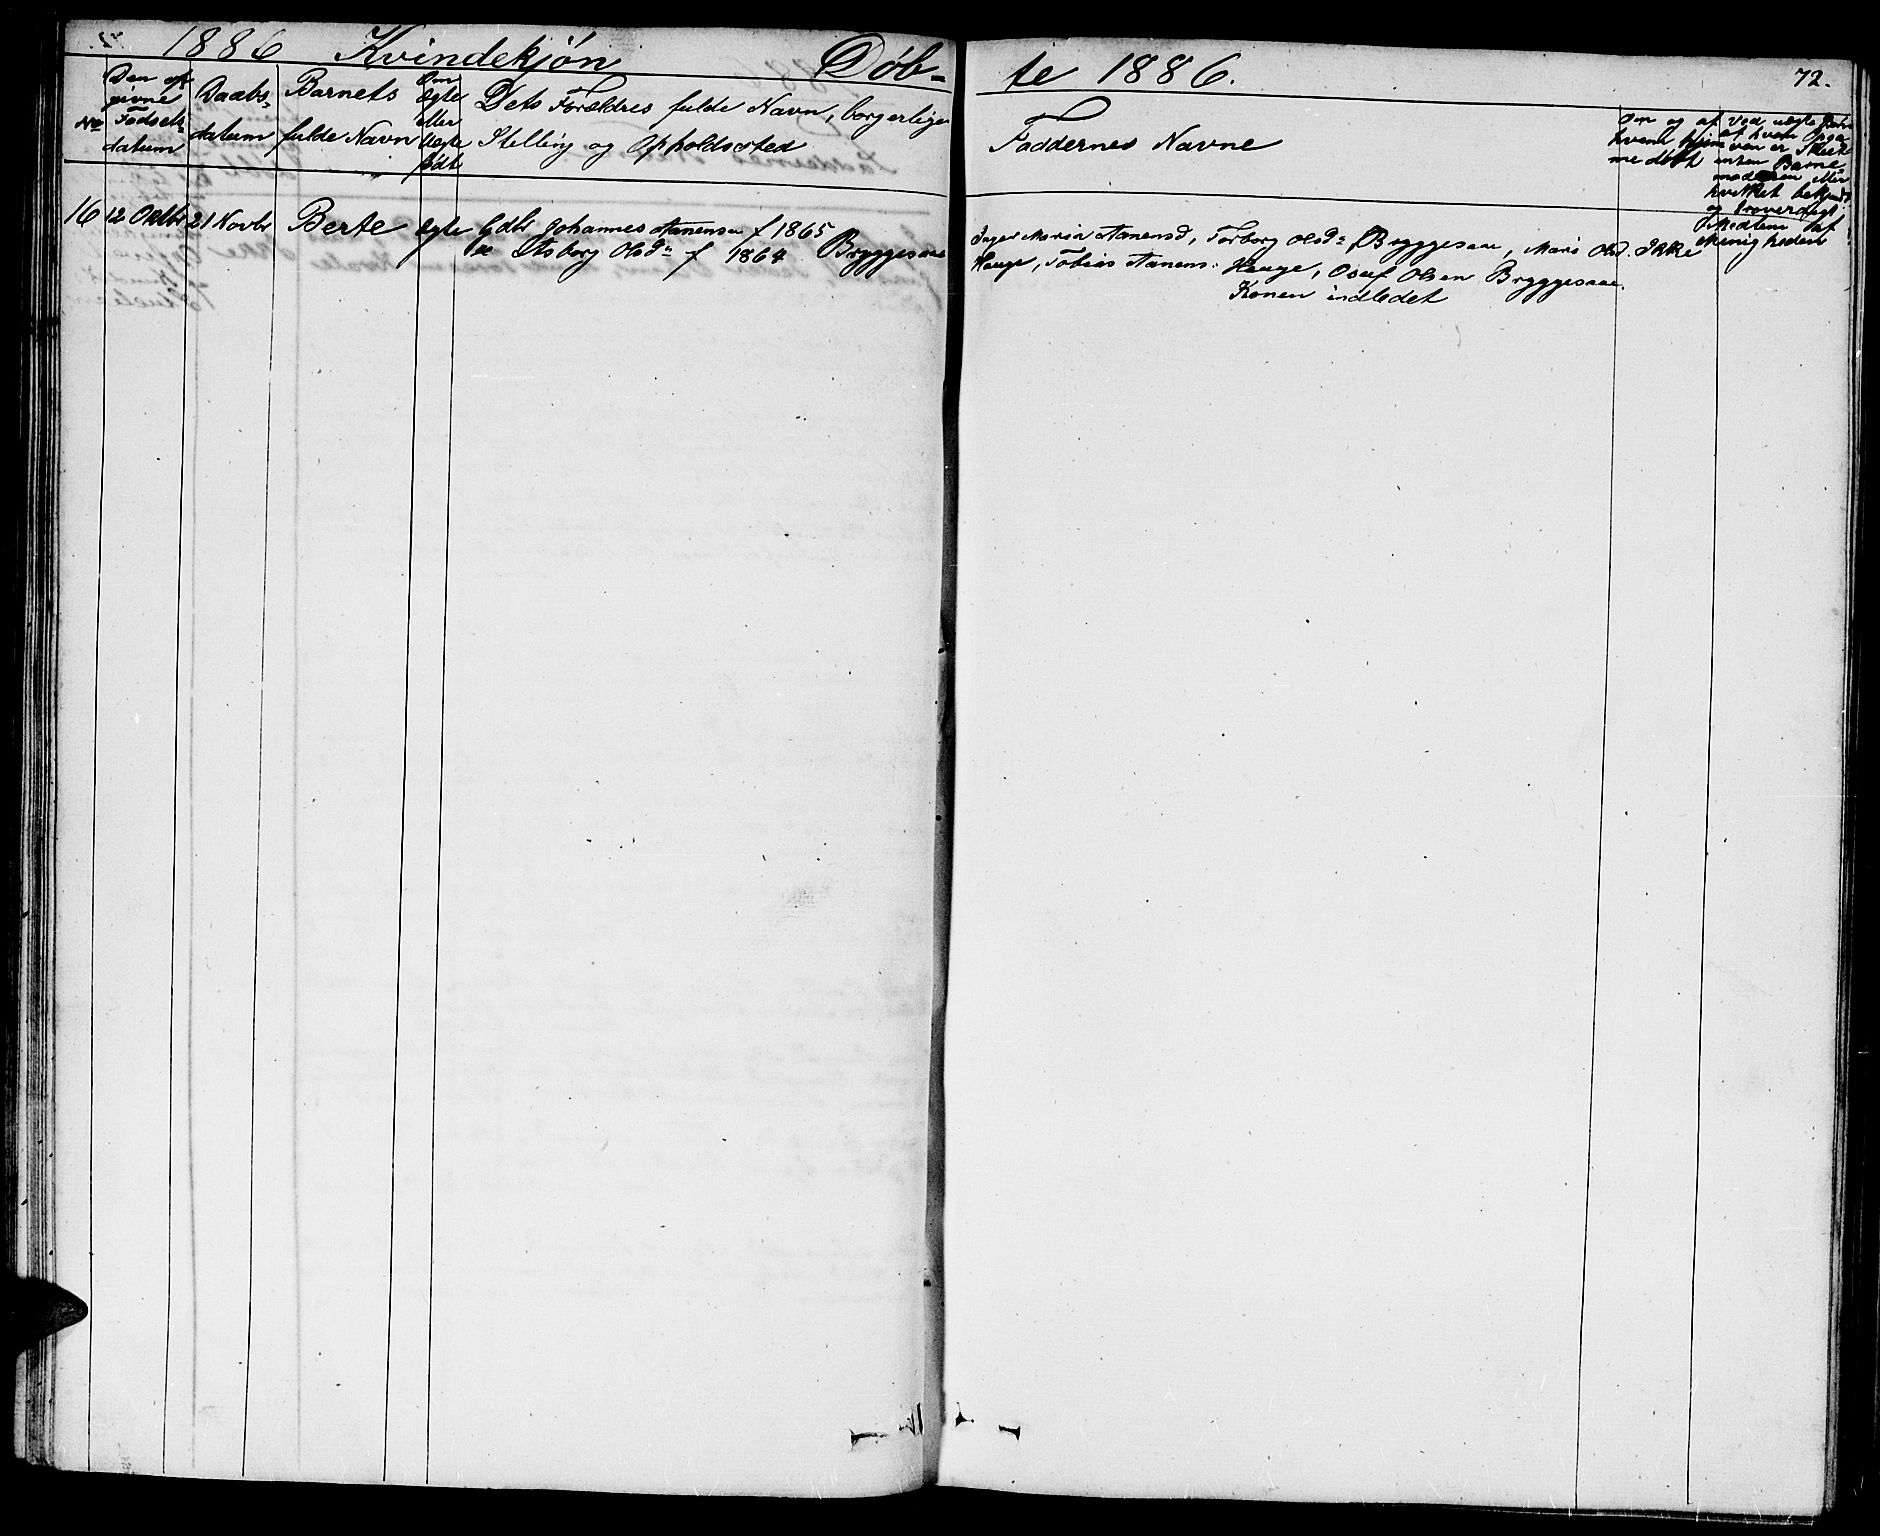 1886 Kvindekjøn Døb-
te 1886. 72.
No
Den op
givne
Fødsels-
datum
Daabs-
datum
Barnets
fulde Navn
Om
Ægte
eller
Uægte
født
Dets Forældres fulde Navn, borgerlige
Stilling og Opholdssted
Faddernes Navne
Om og af
hvem hjem
me døbt
Ved uægte Børn
af hvem Opga
ven er skeet
enten Barne-
moderen eller
hvilket bekjendt
og troværdigt
Medlem af
Menigheden
16 12 Oktbr 21 Novbr Berte Ægte Gdbr Johannes Aanensen f 1865
Asborg Olsdr f 1864 Bryggesaae
Inger Maria Aanensd, Torborg Olsdr Bryggesaae, Mari Olsd. Ikke
Hauge, Tobias Aanens: Hauge, Osuf Olsen Bryggesaae.
Konen indledet